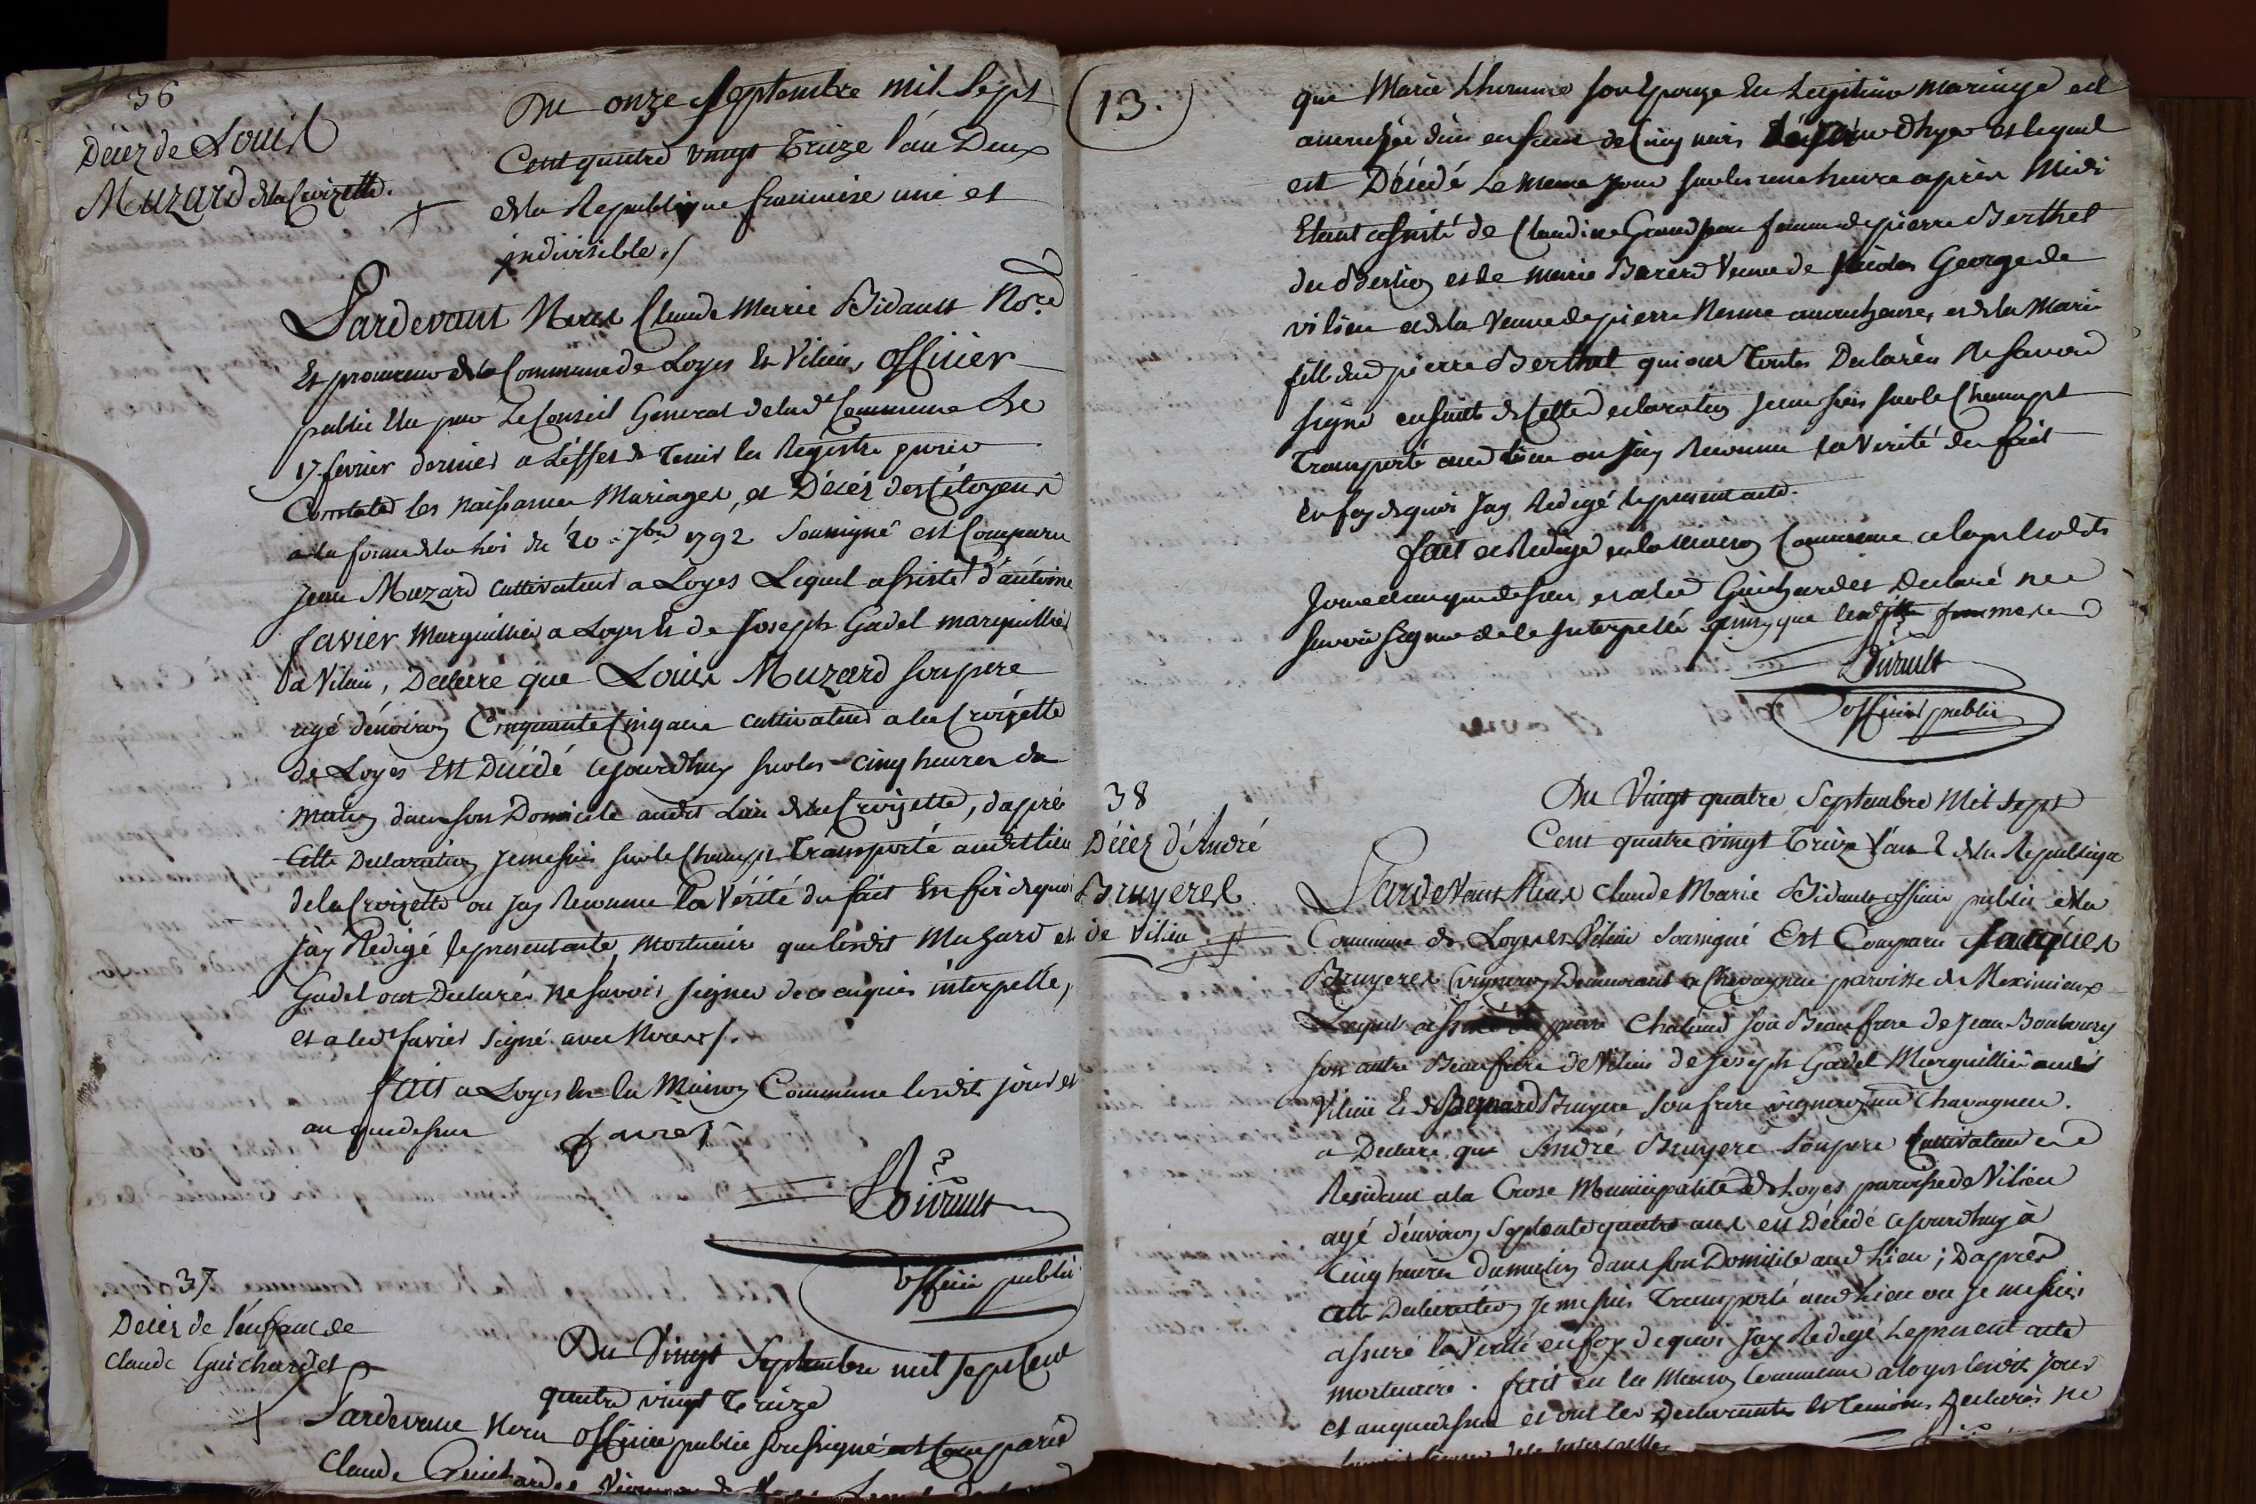 36
Décez de Louis
Muzard de la Croizette.
Du onze Septembre mil Sept
Cent quatre vingt Treize l'an Deux
de la Republique francaise une et
indivisible./
Pardevant Nous Claude Marie Bidault No.re
Et procureur de la Commune de Loyes Et Vilieu, Officier
public Elu par Le Conseil General de lad.e Commune Le
17 fevrier dernier a L'effet de Tenir les Registre pour
Constater les naissances Mariages, et Décéz des Citoyens
a la forme de la Loi du 20 7bre 1792 Soussigné est Comparu
Jean Muzard cultivateur a Loyes Lequel assisté d'antoine
favier Marguillier a Loyes Et de Joseph Gadel marguillier
a Vilieu, Declare que Louis Muzard son pere
agé d'environ Cinquante Cinq ans cultivateur a la Croizette
de Loyes Est Décédé cejourdhuy sur les cinq heures du
matin dans son Domicile audit Lieu de la Croizette, d'apres
Cette Declaration Je me suis sur le Champt Transporté audit lieu
de la Croizette ou jay Reconnu la Vérité du fait En foi de quoi
J'ay Rédigé le present acte mortuaire que lesdit Muzard et
Gadel ont Declarés ne Savoir signer de ce enquis interpellé,
et a led.t favier Signé avec Nous /.
fait a Loyes En la Maison Commune lesdit jour et
an que dessus favier
Bidault
officier public
37
Decez de l'enfant de
Claude Guichardet
Du Vingt Septembre mil Sept Cent
quatre vingt Treize
Pardevant Nous Officier public soussigné est Comparu
Claude Guichardet
13.
que Marie Lhomme son Epouze En Legitime mariage est
accouchée d'un enfant de Cinq mois dhyer et lequel
est Décédé Le meme jour sur les une heure après Midi
Etant assisté de Claudine Grandjean femme de pierre Berthet
du Berlion et de marie Berard Veuve de George de
vilieu et de la Veuve de pierre accoucheuse, et de la Marie
fille dud pierre Berthet qui ont Toutes Declarées Ne Savoir
signé ensuite de Cette declaration je me suis sur le Champt
Transporté aud lieu ou jay Reconnu la Verité du fait
En foy de quoi Jay Redigé le present acte.
fait et Redigé en la maison Commune
jour et an que dessus et a led Guichardet Declaré ne
savoir signer de le Interpellé que les
Bidault
officier public
38
Décez d'André
Bruyeres
de Vilieu
Du Vingt quatre Septembre Mil Sept
Cent quatre vingt Treize L'an 2 de la Republique
Pardevant Nous Claude Marie Bidault officier public de la
Commune de Loyes et Vilieu Soussigné Est Comparu Jacques
Bruyeres vigneron Demeurant a Chavagneu paroisse de Meximieux
Lequel assisté de pierre Chaland son Beaufrere de Jean
son autre Beaufrere de Vilieu de Joseph Gadel Marguillier audit
Vilieu Et de Bernard Bruyere son frere vigneron aud Chavagneu.
a Declaré que André Bruyere Son pere Cultivateur
Residant a la Crose Municipalité de Loyes paroisse de Vilieu
agé d'environ Septante quatre ans est Décédé cejourdhuy à
Cinq heures du matin dans son Domicile aud Lieu; D'apres
cette Declaration Je me suis Transporté aud Lieu ou je me suis
assuré la Verité en foy de quoi Jay Redigé Le present acte
mortuaire. fait en la Maison Commune a loyes lesdit jour
et an que dessus et ont les Declarants Et Temoins Declarés ne
savoir signer de le Interpellés